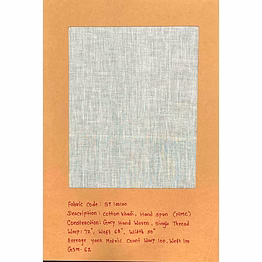 Fabric Code: ST 100100
Description: Cotton Khadi, Hand Spun (NMC)
Construction: Grey Hand Woven, Single Thread
Warp: 72", Weft 68", Width 50"
Average Yarn Metric Count Warp 100, Weft 100
GSM-62